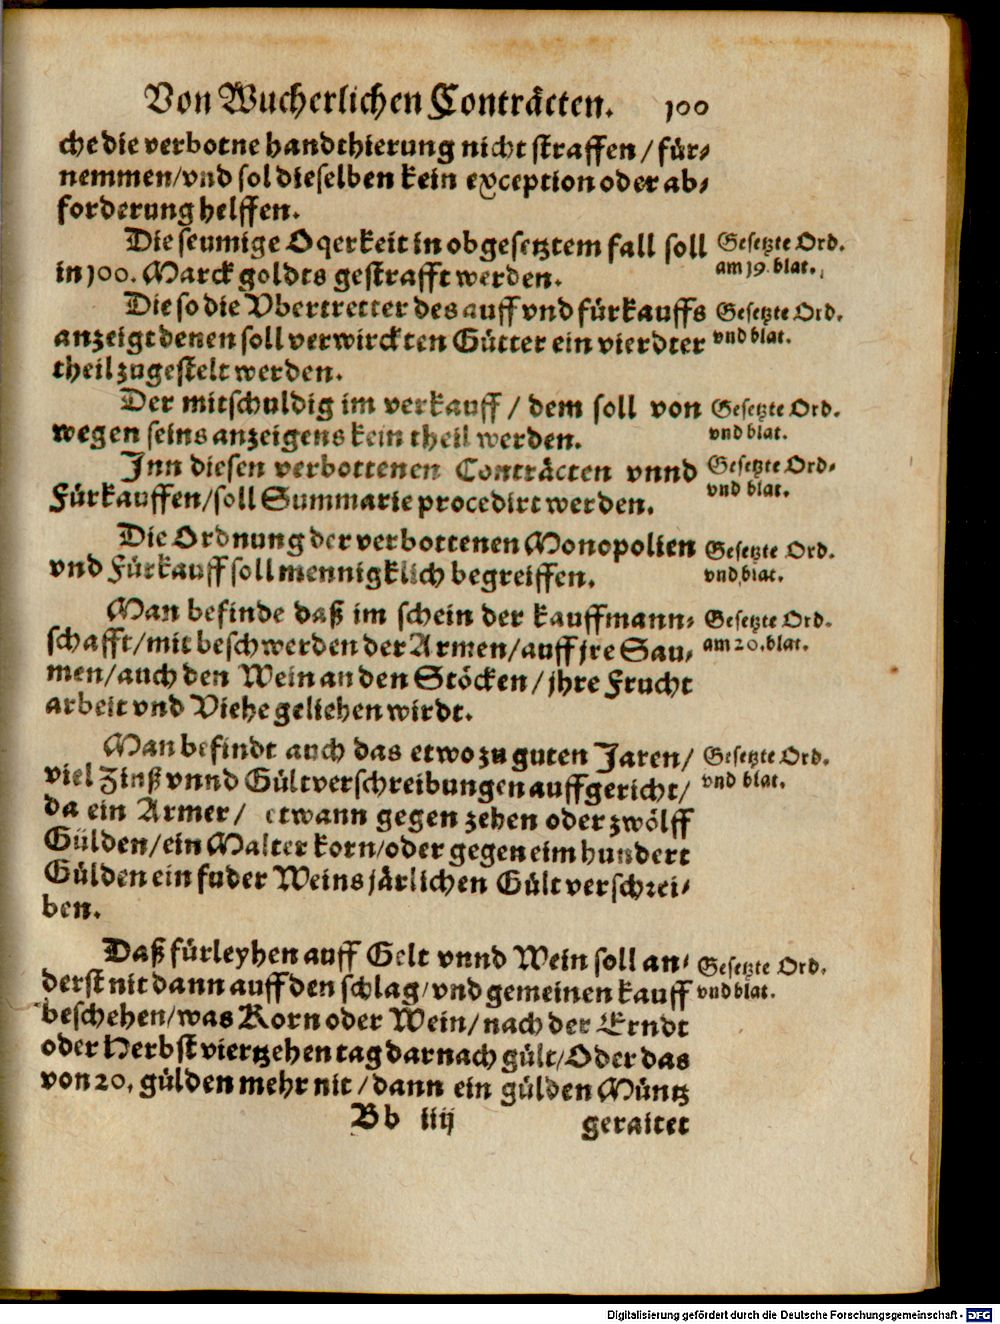 Von Wucherlichen Conträcten. 100
che die verbotne handthierung nicht straffen / für-
nemmen/vnd sol dieselben kein exception oder ab-
forderung helffen.
Die seumige Oqerkeit in obgesetztem fall soll
in 100. Marck goldts gestrafft werden.
Gesetzte Ord.
am 19. blat.
Die so die Vbertretter des auff vnd fürkauffs
anzeigt denen soll verwirckten Gütter ein vierdter
theil zugestelt werden.
Gesetzte Ord.
vnd blat.
Der mitschuldig im verkauff / dem soll von
wegen seins anzeigens kein theil werden.
Gesetzte Ord.
vnd blat.
Inn diesen verbottenen Conträcten vnnd
Fürkauffen/soll Summarie procedirt werden.
Gesetzte Ord.
vnd blat.
Die Ordnung der verbottenen Monopolien
vnd Fürkauff soll mennigklich begreiffen.
Gesetzte Ord.
vnd blat.
Man befinde daß im schein der kauffmann-
schafft/mit beschwerden der Armen/auff jre Sau-
men/auch den Wein an den Stöcken/jhre Frucht
arbeit vnd Viehe geliehen wirdt.
Gesetzte Ord.
am 20. blat.
Man befindt auch das etwo zu guten Jaren/
viel Zinß vnnd Gültverschreibungen auffgericht/
da ein Armer/ etwann gegen zehen oder zwölff
Gülden/ein Malter korn/oder gegen eim hundert
Gülden ein fuder Weins järlichen Gült verschrei-
ben.
Gesetzte Ord.
vnd blat.
Daß fürleyhen auff Gelt vnnd Wein soll an-
derst nit dann auff den schlag/vnd gemeinen kauff
beschehen/was Korn oder Wein/nach der Erndt
oder Herbst viertzehen tag darnach gült/Oder das
von 20. gülden mehr nit/dann ein gülden Müntz
Gesetzte Ord.
vnd blat.
Bb iiij geraitet
Digitalisierung gefördert durch die Deutsche Forschungsgemeinschaft - DFG